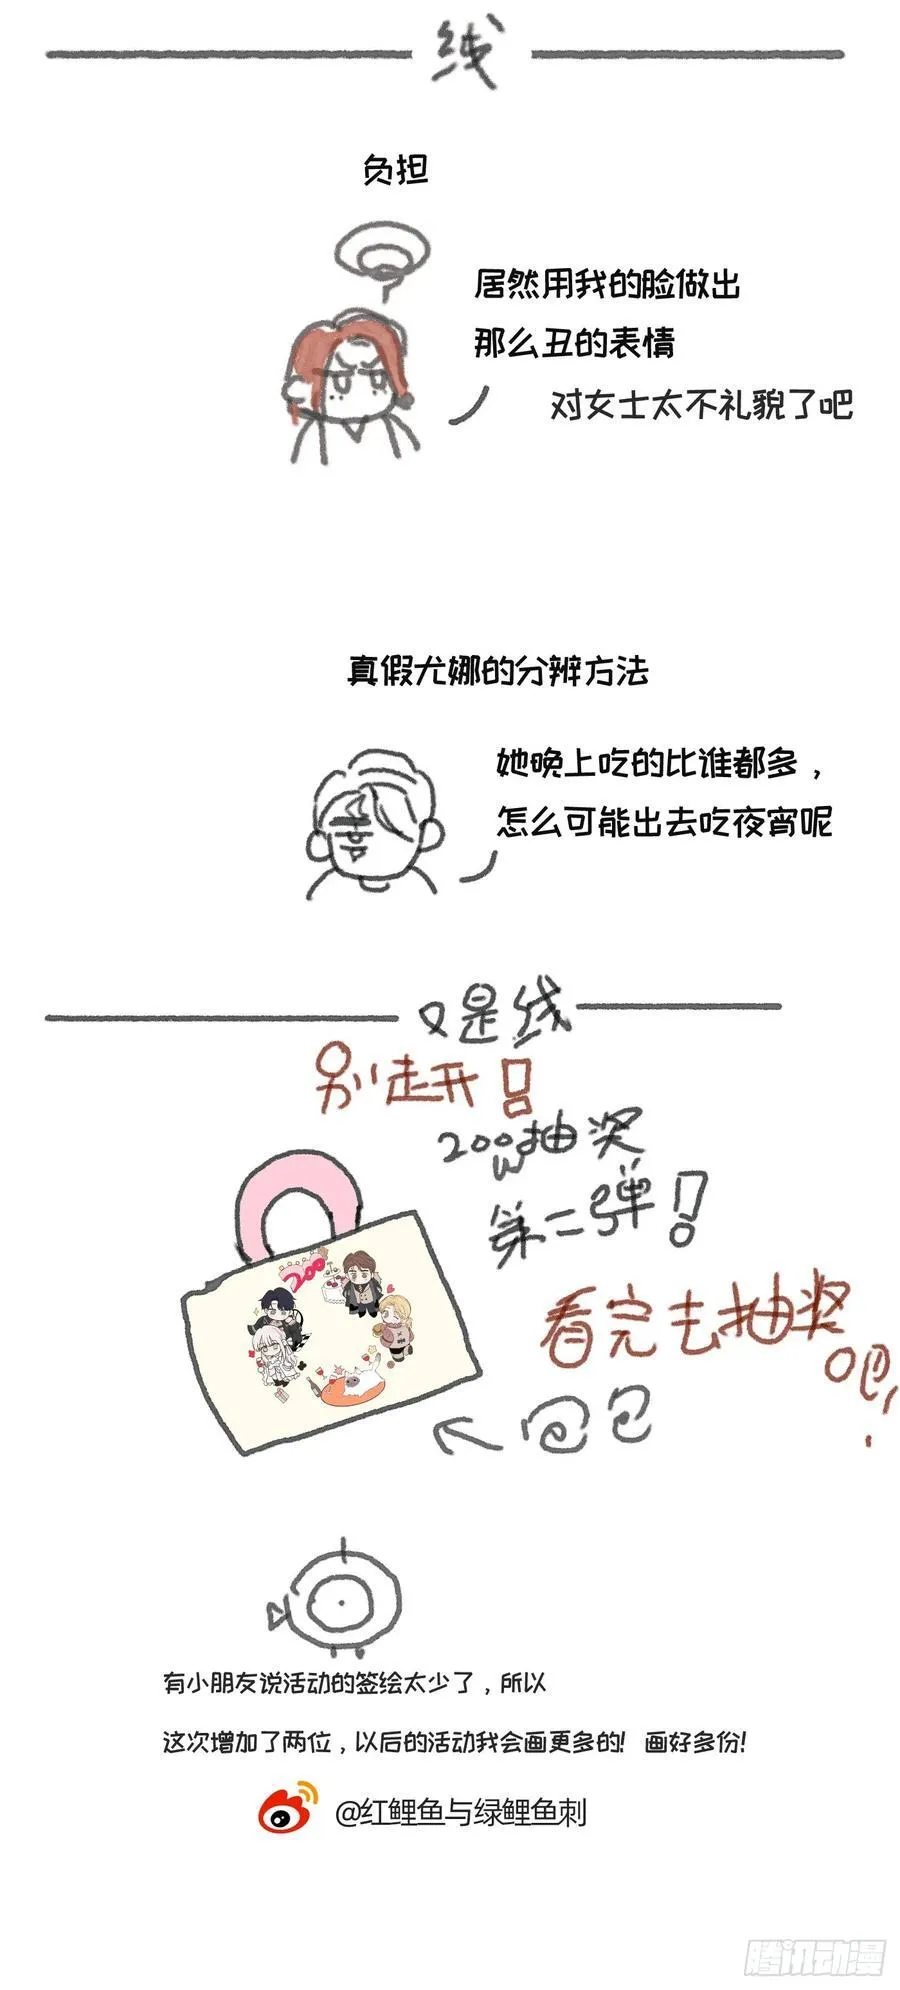 线
负担
居然用我的脸做出
那么丑的表情
对女士太不礼貌了吧
真假尤娜的分辨方法
她晚上吃的比谁都多，
怎么可能出去吃夜宵呢
又是线
别走开！
200w抽奖
第二弹！
200
看完去抽奖
吧！
包
有小朋友说活动的签绘太少了，所以
这次增加了两位，以后的活动我会画更多的！ 画好多份！
@红鲤鱼与绿鲤鱼刺
腾讯动漫